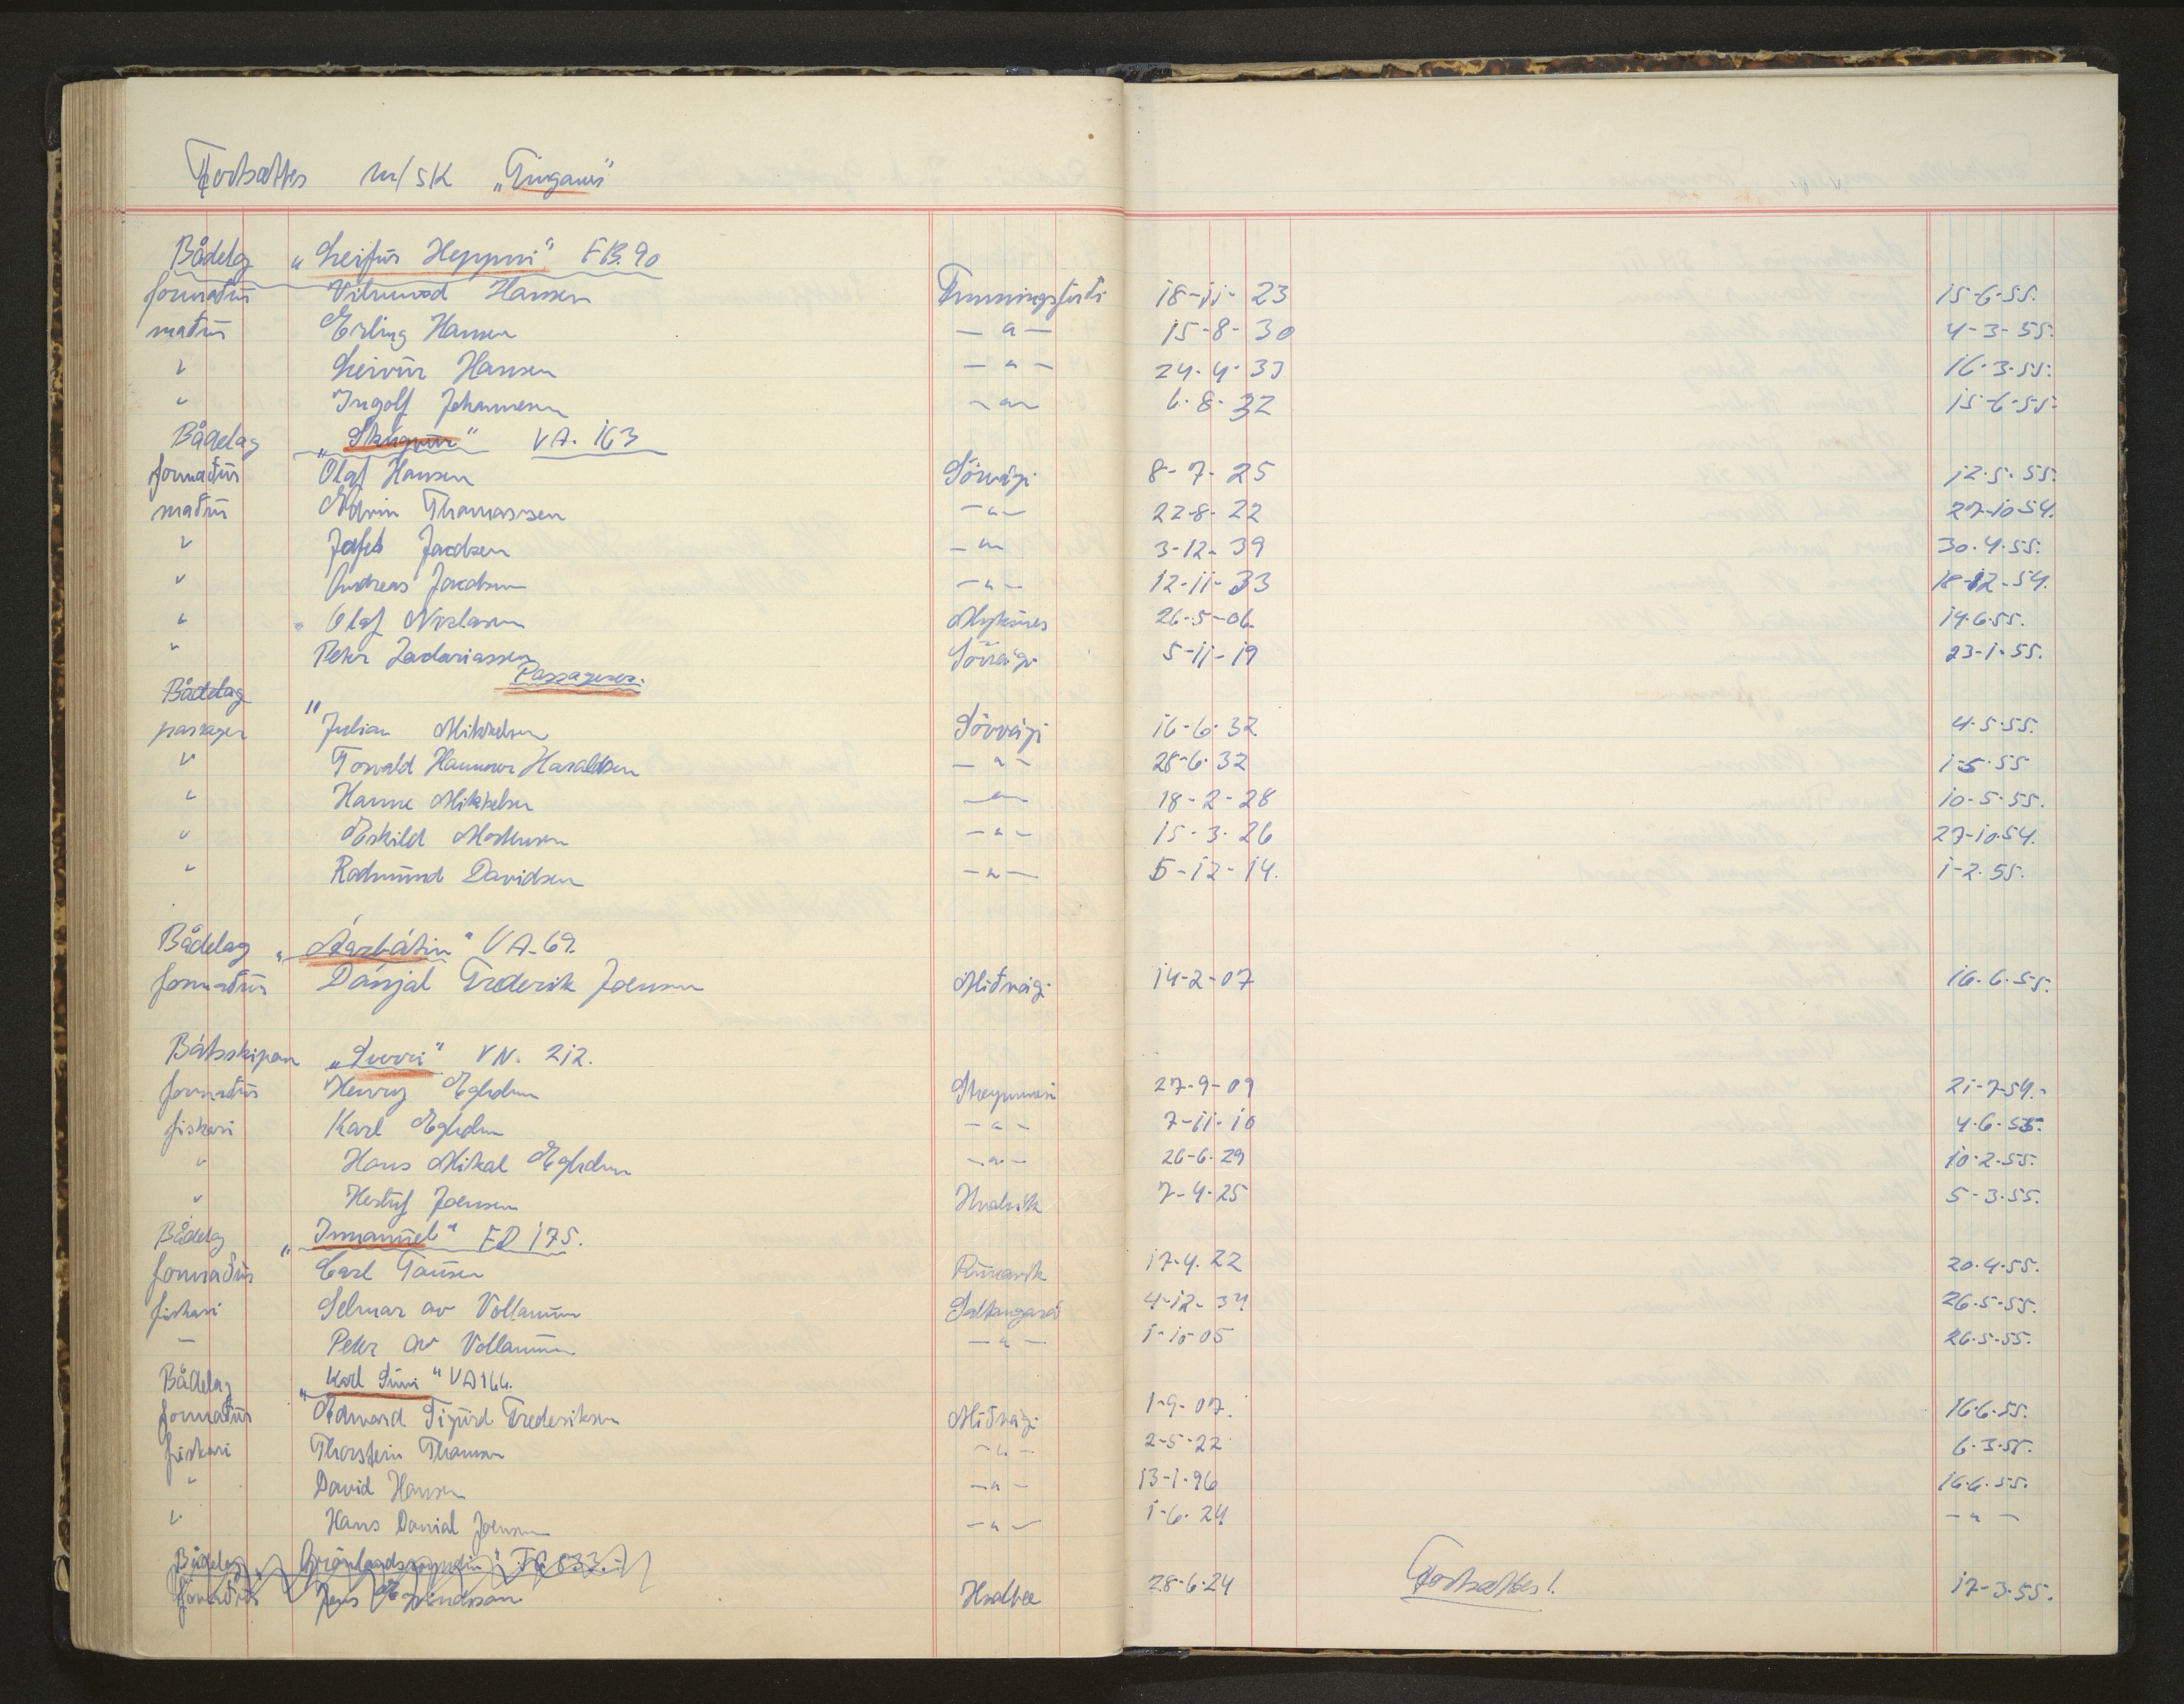 Fortsattes m/sk „Tinganes"
Bådelag „Leifur Heppni" FB. 90
formaður Vilmund Hansen Funningsfirði 18-11-23 15-6-55.
maður Erling Hansen — " — 15-8-30 4-3-55.
" Leivur Hansen — " — 24-4-33 16-3-55.
" Ingolf Johannesen — " — 6-8-32 15-6-55.
Bådelag „Skúgvur" VA. 163
formaður Olaf Hansen Sörvági 8-7-25 12-5-55.
maður Edvin Thomassen — " — 22-8-22 27-10-54.
" Jafet Jacobsen — " — 3-12-39 30-4-55.
" Andreas Jacobsen — " — 12-11-33 18-12-54.
" Olaf Niclasen Mykines 26-5-06. 19-6-55.
" Peter Zachariassen Sörvági 5-11-19 23-1-55.
Passagerer.
Bådelag "
passager Julian Mikkelsen Sörvági 16-6-32 4-5-55.
" Torvald Hammer Haraldsen — " — 28-6-32 1-5-55
" Hanne Mikkelsen — " — 18-2-28 10-5-55.
" Eskild Mortensen — " — 15-3-26 27-10-54.
" Rodmund Davidsen — " — 5-12-14. 1-2-55.
Bådelag VA-69.
formaður Dánjal Frederik Joensen Miðvági 14-2-07 16-6-55.
Bátsskipan VN. 212.
formaður Henry Egholm Streymnesi 27-9-09 21-7-54.
fiskari Karl Egholm — " — 7-11-10 4-6-55.
" Hans Mikal Egholm — " — 26-6-29 10-2-55.
" Joensen Hvalvík 7-4-25 5-3-55.
Bådelag „Immanuel" FD 175.
formaður Carl Tausen Runavík 17-4-22 20-4-55.
fiskari Selmar av Vollanum Saltangará 4-12-34 26-5-55.
— Peter av Vollanum — " — 1-10-05 26-5-55.
Bådelag „Karl VA 166.
formaður Edward Sigurd Frederiksen Miðvági 1-9-07. 16-6-55.
fiskari Thorstein Thomsen — " — 2-5-22 6-3-55.
" David Hansen — " — 13-1-96 16-6-55.
" Hans Danial Joensen — " — 1-6-24 — " —
Bådelag „ TG 833.
formaður Jens Hvalba 28-6-24 Fortsattes! 17-3-55.